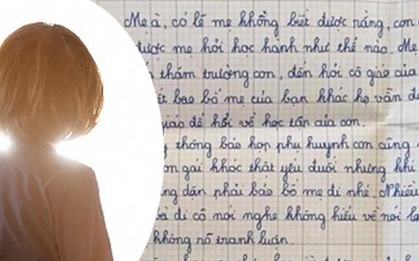 Mẹ à, có lẽ mẹ không biết được rằng, con
được mẹ hỏi học hành như thế nào. Mẹ
thăm trường con, đến hỏi cô giáo của
bao bố mẹ của bạn khác họ vẫn
giáo để hỏi về học tấn của con.
thông báo họp phụ huynh con cũng
con gái khóc thật yếu đuối nhưng khi
dần phải bảo bố mẹ đi nhé. Nhiều
bà đi cô nói nghe không hiểu về nói
không rõ tranh luận.